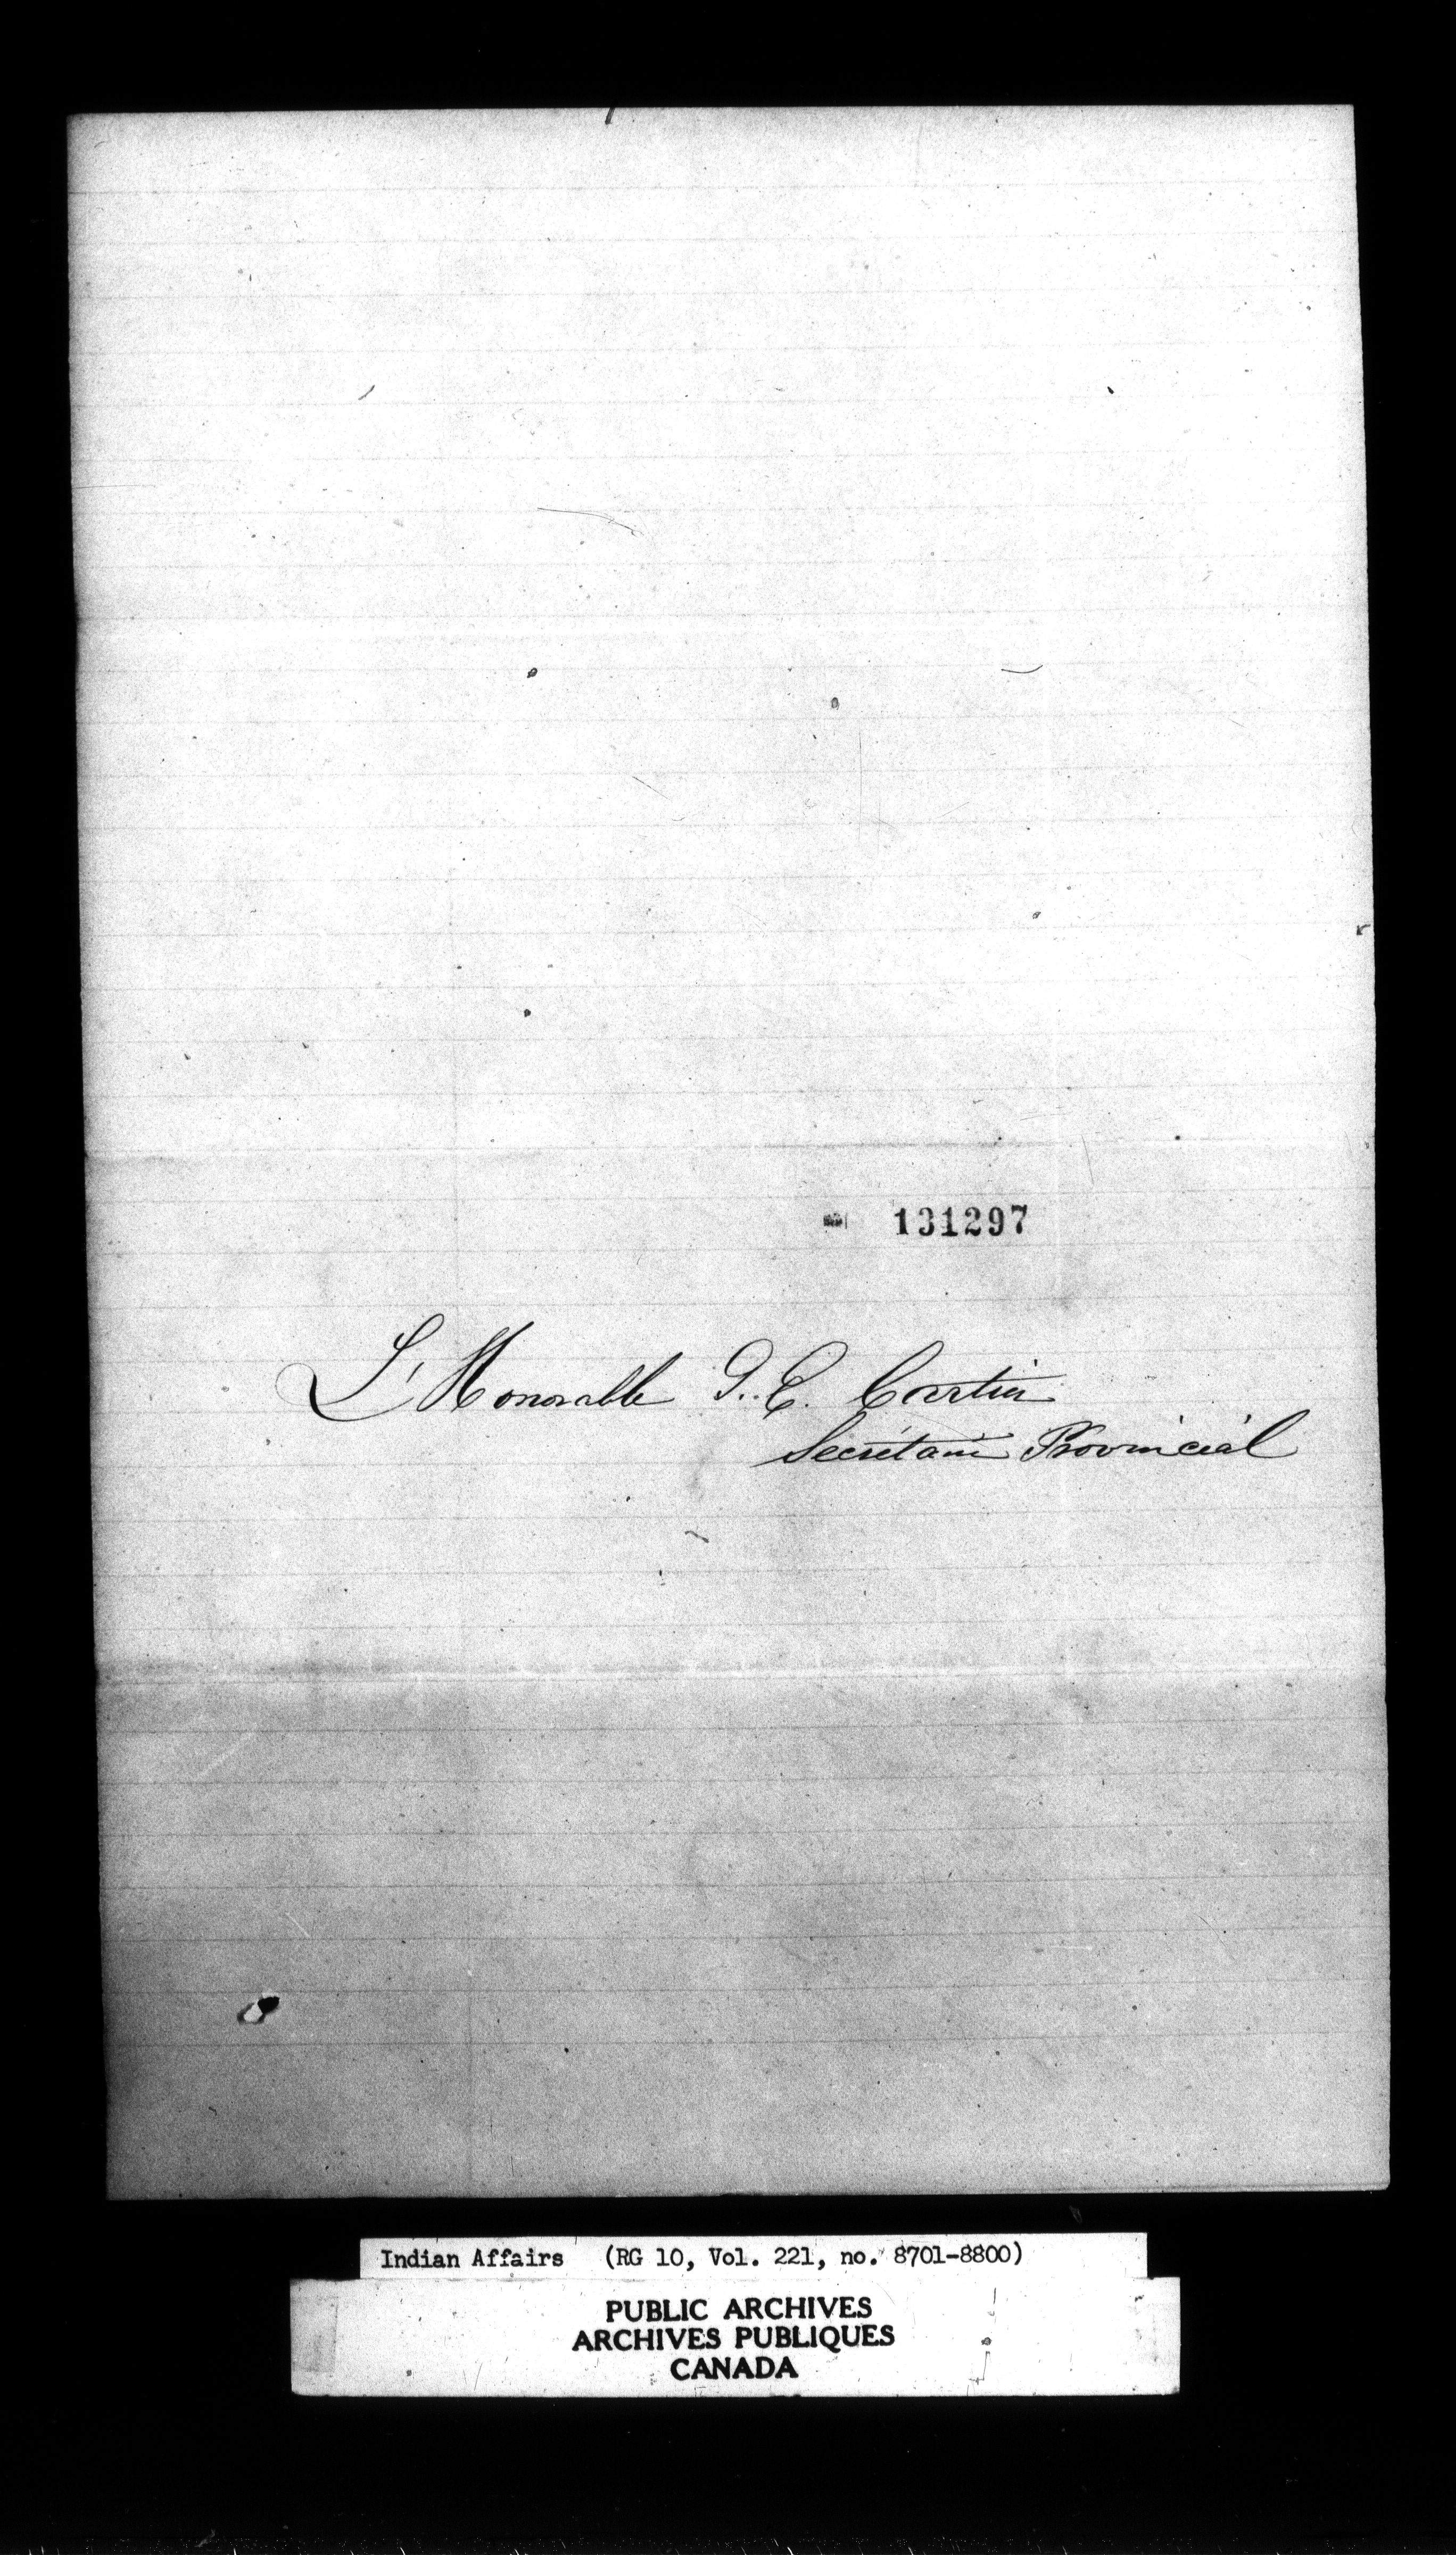 131297
L'Honorable G. E. Cartier
Secrétaire Provincial
Indian Affairs (RG 10, Vol. 221, no. 8701-8800)
PUBLIC ARCHIVES
ARCHIVES PUBLIQUES
CANADA